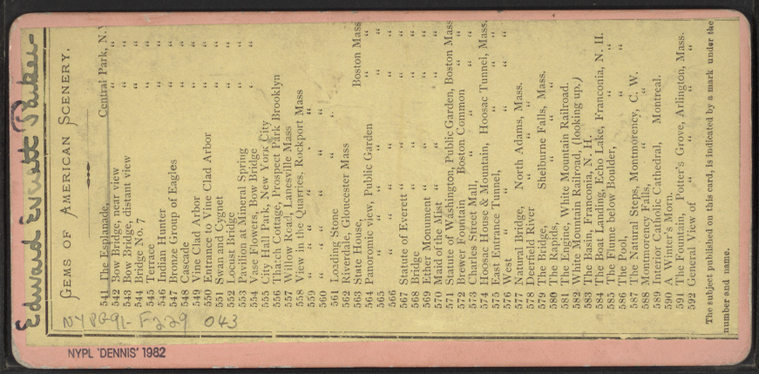 Edward Everett Parker
GEMS OF AMERICAN SCENERY.
541 The Esplanade, Central Park, N.Y
542 Bow Bridge, near view " "
543 Bow Bridge, distant view " "
544 Bridge No. 7 " "
545 Terrace " "
546 Indian Hunter " "
547 Bronze Group of Eagles " "
548 Cascade " "
549 Vine Clad Arbor " "
550 Entrance to Vine Clad Arbor " "
551 Swan and Cygnet " "
552 Locust Bridge " "
553 Pavilion at Mineral Spring " "
554 Vase Flowers, Bow Bridge " "
555 City Hall Park, New York City
556 Thatch Cottage, Prospect Park Brooklyn
557 Willow Road, Lanesville Mass
558 View in the Quarries, Rockport Mass
559 " " " " "
560 " " " " "
561 Loading Stone " "
562 Riverdale, Gloucester Mass
563 State House, Boston Mass
564 Panoromic view, Public Garden " "
565 " " " " "
566 " " " " "
567 Statute of Everett " " " "
568 Bridge " " " "
569 Ether Monument " " " "
570 Maid of the Mist " " " "
571 Statute of Washington, Public Garden, Boston Mass
572 Brewer Fountain Boston Common " "
573 Charles Street Mall, " " " "
574 Hoosac House & Mountain, Hoosac Tunnel, Mass.
575 East Entrance Tunnel, " " "
576 West " " " " "
577 Natural Bridge, North Adams, Mass.
578 Deerfield River " " "
579 The Bridge, Shelburne Falls, Mass.
580 The Rapids, " " "
581 The Engine, White Mountain Railroad.
582 White Mountain Railroad, (looking up,)
583 The Basin, Franconia, N. H.
584 The Boat Landing, Echo Lake, Franconia, N. H.
585 The Flume below Boulder, " "
586 The Pool, " "
587 The Natural Steps, Montmorency, C. W.
588 Montmorency Falls, " "
589 Interior Catholic Cathedral, Montreal.
590 A Winter's Morn.
591 The Fountain, Potter's Grove, Arlington, Mass.
592 General View of " " " "
The subject published on this card, is indicated by a mark under the
number and name.
NYPG91-F229 043
NYPL 'DENNIS' 1982